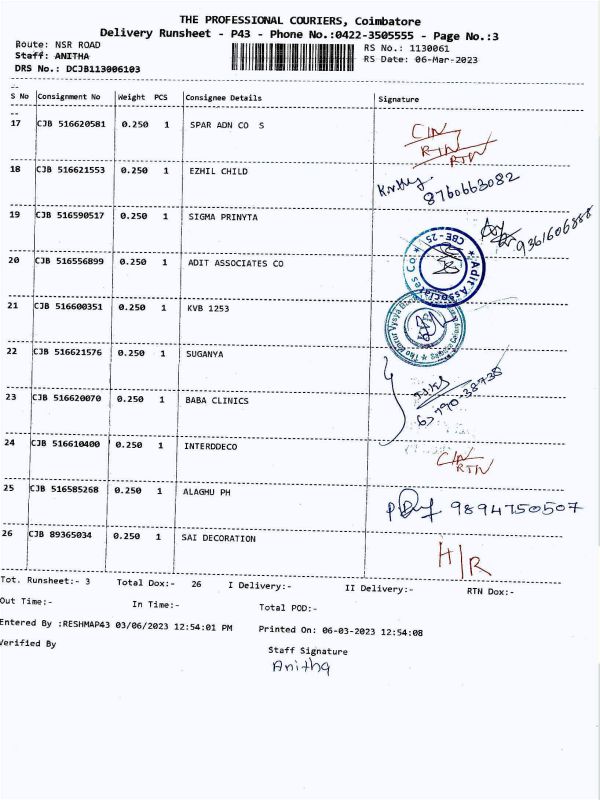 THE PROFESSIONAL COURIERS, Coimbatore
Delivery Runsheet - P43 - Phone No.:0422-3505555 - Page No.:3
Route: NSR ROAD RS No.: 1130061
Staff: ANITHA RS Date: 06-Mar-2023
DRS No.: DCJB113006103
--
S No Consignment No Weight PCS Consignee Details Signature
--
17 CJB 516620581 0.250 1 SPAR ADN CO S
RTN
18 CJB 516621553 0.250 1 EZHIL CHILD
8760663082
19 CJB 516590517 0.250 1 SIGMA PRINYTA
9361606888
20 CJB 516556899 0.250 1 ADIT ASSOCIATES CO
Adit Associates Co * CBE - 25 *
21 CJB 516600351 0.250 1 KVB 1253
22 CJB 516621576 0.250 1 SUGANYA
23 CJB 516620070 0.250 1 BABA CLINICS
24 CJB 516610400 0.250 1 INTERDDECO
RTN
25 CJB 516585268 0.250 1 ALAGHU PH
9894750507
26 CJB 89365034 0.250 1 SAI DECORATION
H/R
Tot. Runsheet:- 3 Total Dox:- 26 I Delivery:- II Delivery:- RTN Dox:-
Out Time:- In Time:- Total POD:-
Entered By :RESHMAP43 03/06/2023 12:54:01 PM Printed On: 06-03-2023 12:54:08
Verified By Staff Signature
Anitha